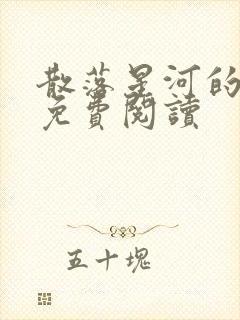 散落星河的
免費閱讀
五十塊